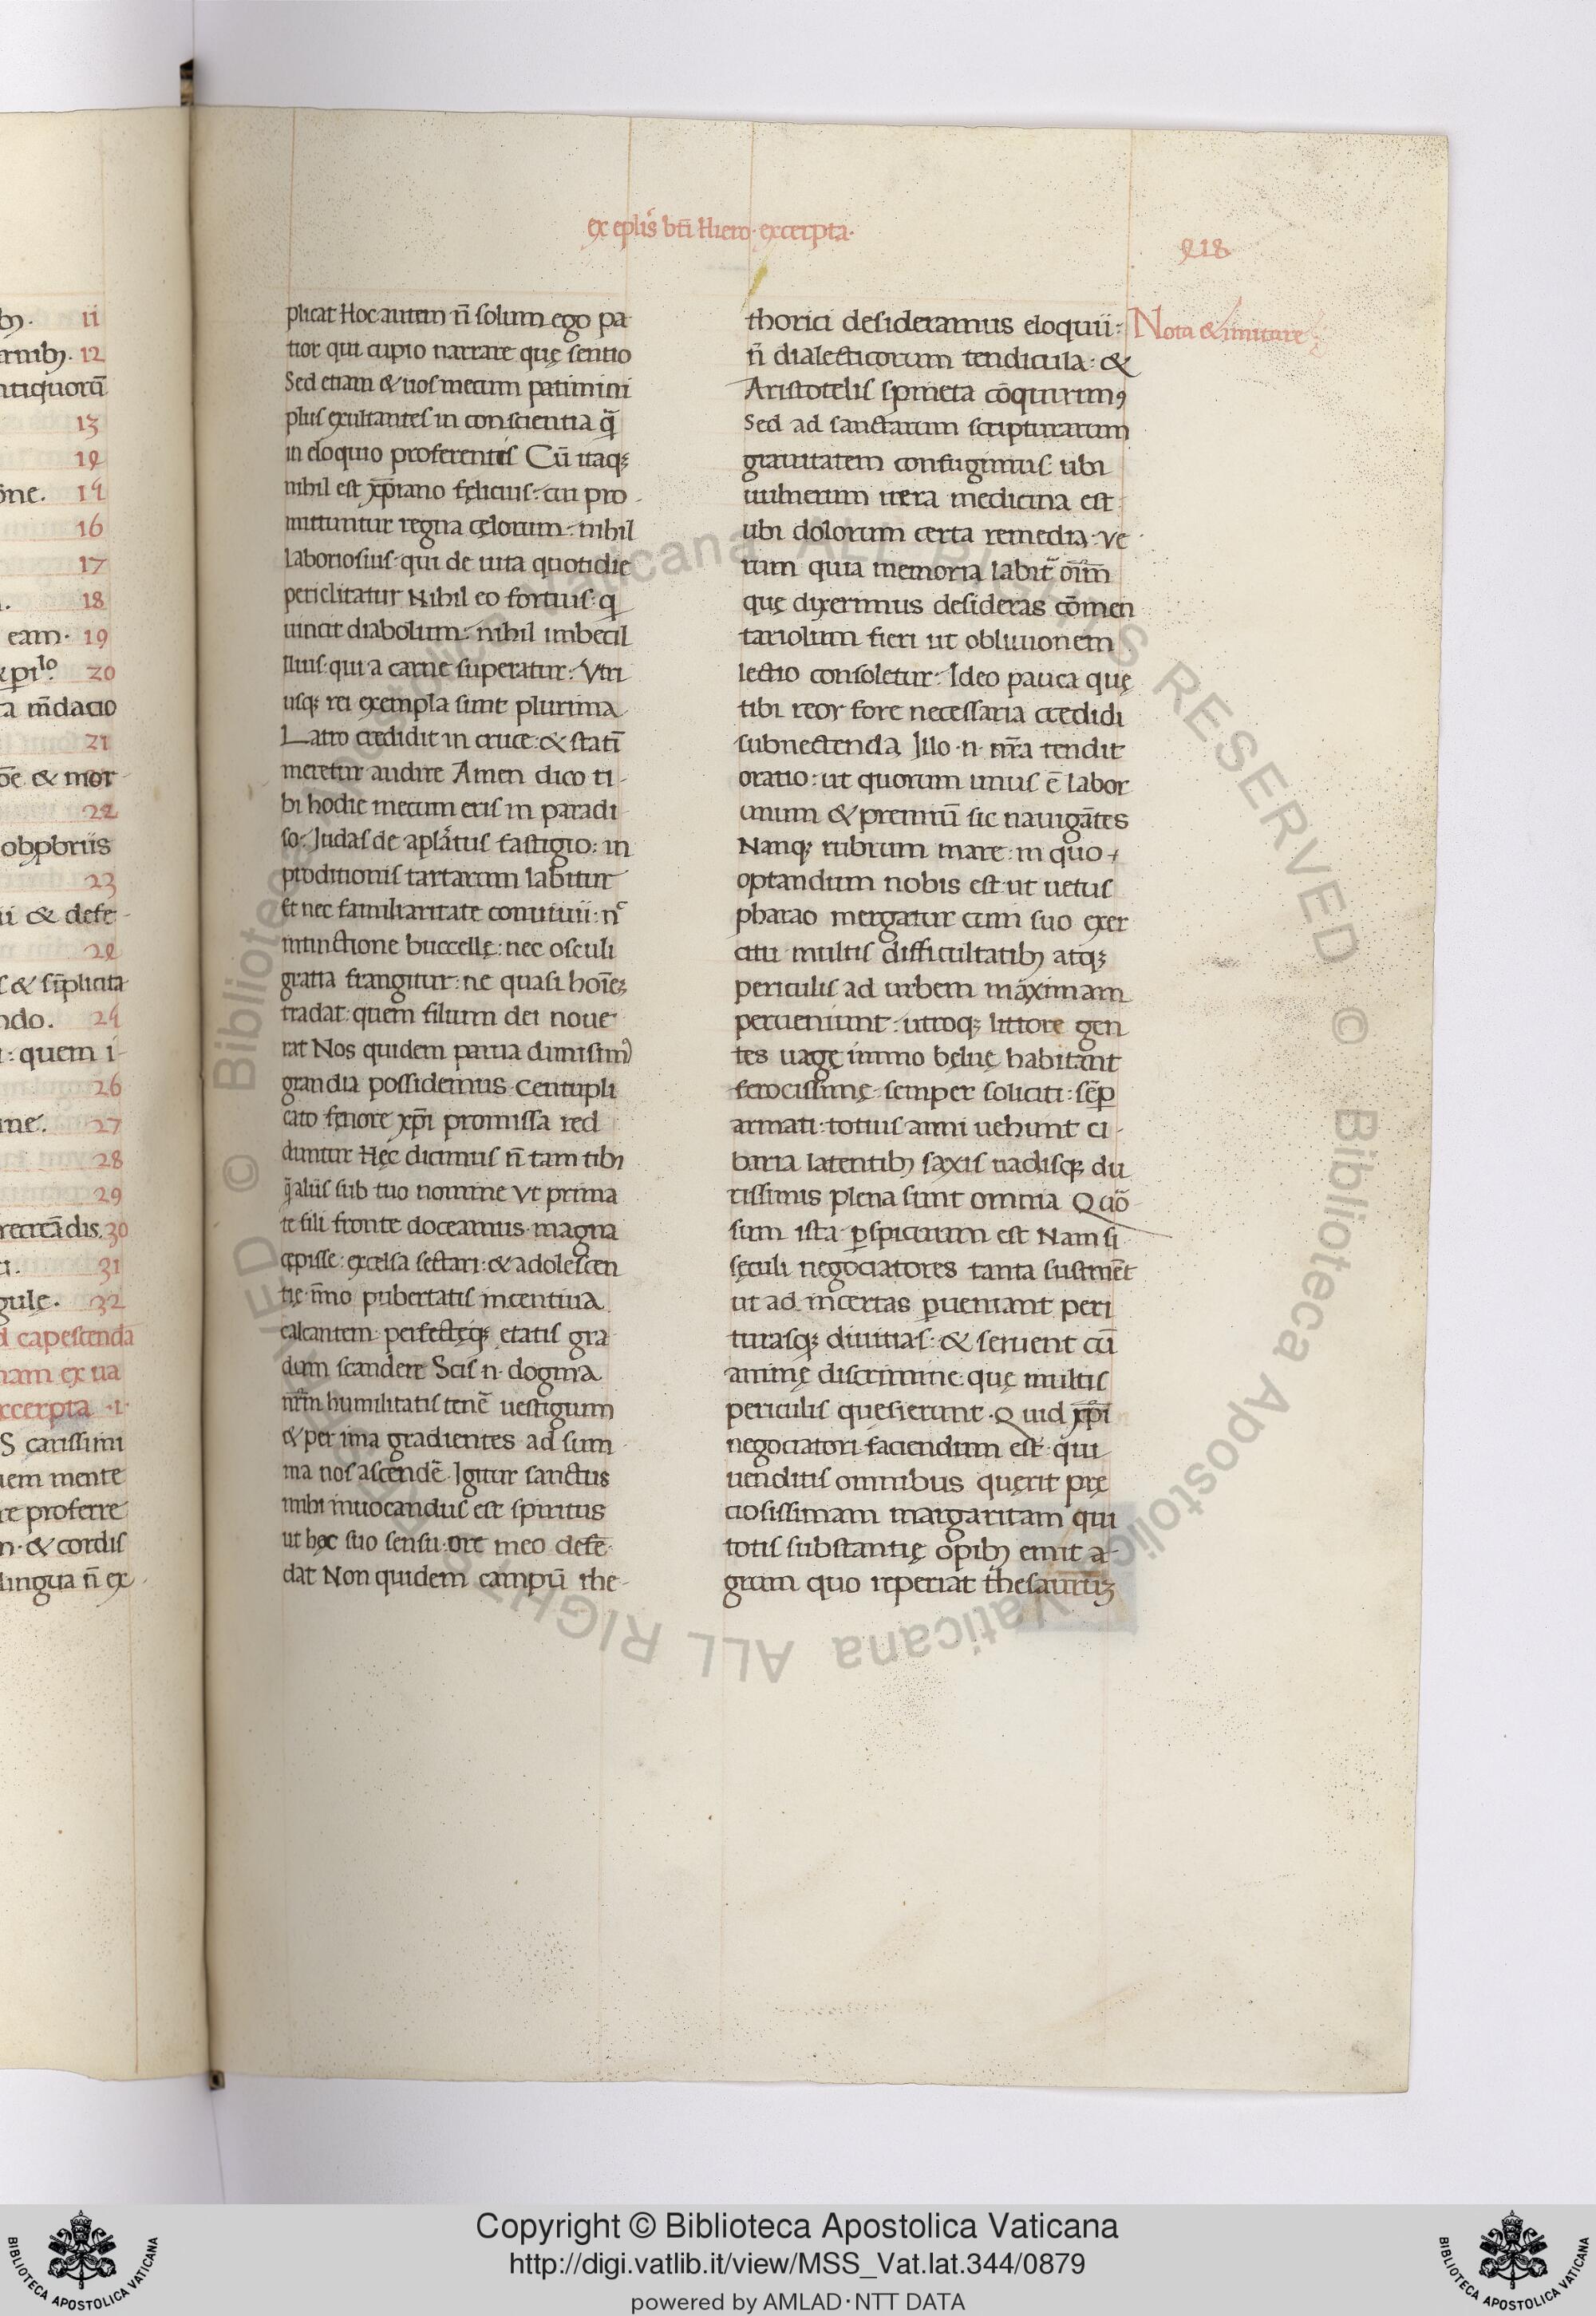 ex eplis bti Hiero· excerpta·
218
plicat Hoc autem n̄ solum ego pa
tior qui cupio narrare quę sentio
Sed etiam & uos mecum patimini
plus exultantes in conscientia q̄
in eloquio proferentis Cū itaqꝫ
nihil est xp̄iano fęlicius: cui pro
mittuntur regna cęlorum: nihil
laboriosius: qui de uita quotidie
periclitatur Nihil eo fortius: q
uincit diabolum: nihil imbecil
lius: qui a carne superatur: Vtri
usqꝫ rei exempla sunt plurima
Latro credidit in cruce: & statī
meretur audire Amen dico ti-
bi hodie mecum eris in paradi
so: Judas de apl̄atus fastigio: in
proditionis tartarum labitur
Et nec familiaritate conuiuii: nͨ
intinctione buccellę: nec osculi
gratia frangitur: ne quasi hoīeꝫ
tradat: quem filium dei noue
rat Nos quidem parua dimisimꝰ
grandia possidemus centupli
cato fęnore xp̄i promissa red
duntur Hęc dicimus n̄ tam tibi
q̄ aliis sub tuo nomine Vt prima
te fili fronte doceamus magna
cępisse: excelsa sectari: & adolescen
tię īmo pubertatis incentiua
calcantem: perfectęqꝫ etatis gra
dum scandere Scis ·n· dogma
nr̄m humilitatis tenē uestigium
& per ima gradientes ad sum
ma nos ascendē. Igitur sanctus
mihi inuocandus est spiritus
ut hęc suo sensu: ore meo defē
dat Non quidem campū rhe-
thorici desideramus eloquii:
n̄ dialecticorum tendicula: &
Aristotelis spineta cōquirimꝰ
Sed ad sanctarum scripturarum
grauitatem confugimus ubi
uulnerum uera medicina est
ubi dolorum certa remedia: Ve
rum quia memoria labit̄ oīm̄
quę dixerimus desideras cōmen
tariolum fieri ut obliuionem
lectio consoletur: Ideo pauca quę
tibi reor fore necessaria credidi
subnectenda Illo ·n· nr̄a tendit
oratio: ut quorum unus ē labor
unum & premiū sic nauigātes
Nanqꝫ rubrum mare: in quo
optandum nobis est ut uetus
pharao mergatur cum suo exer
citu multis difficultatibꝫ atqꝫ
periculis ad urbem maximam
perueniunt: utroqꝫ littore gen
tes uagę immo bęluę habitant
ferocissimę: semper soliciti: sēp
armati: totius anni uehunt ci-
baria latentibꝫ saxis uadisqꝫ du
rissimis plena sunt omnia Quō
sum ista ꝑspicuum est Nam si
sęculi negociatores tanta sustinēt
ut ad incertas ꝑueniant peri
turasqꝫ diuitias: & seruent cū
animę discrimine: quę multis
periculis quesierunt· Quid xp̄i
negociatori faciendum est: qui
uenditis omnibus quęrit prę
ciosissimam margaritam qui
totis substantię opibꝫ emit a-
grum quo reperiat thesauruꝫ
Nota & imitare
Copyright © Biblioteca Apostolica Vaticana
http://digi.vatlib.it/view/MSS_Vat.lat.344/0879
powered by AMLAD·NTT DATA